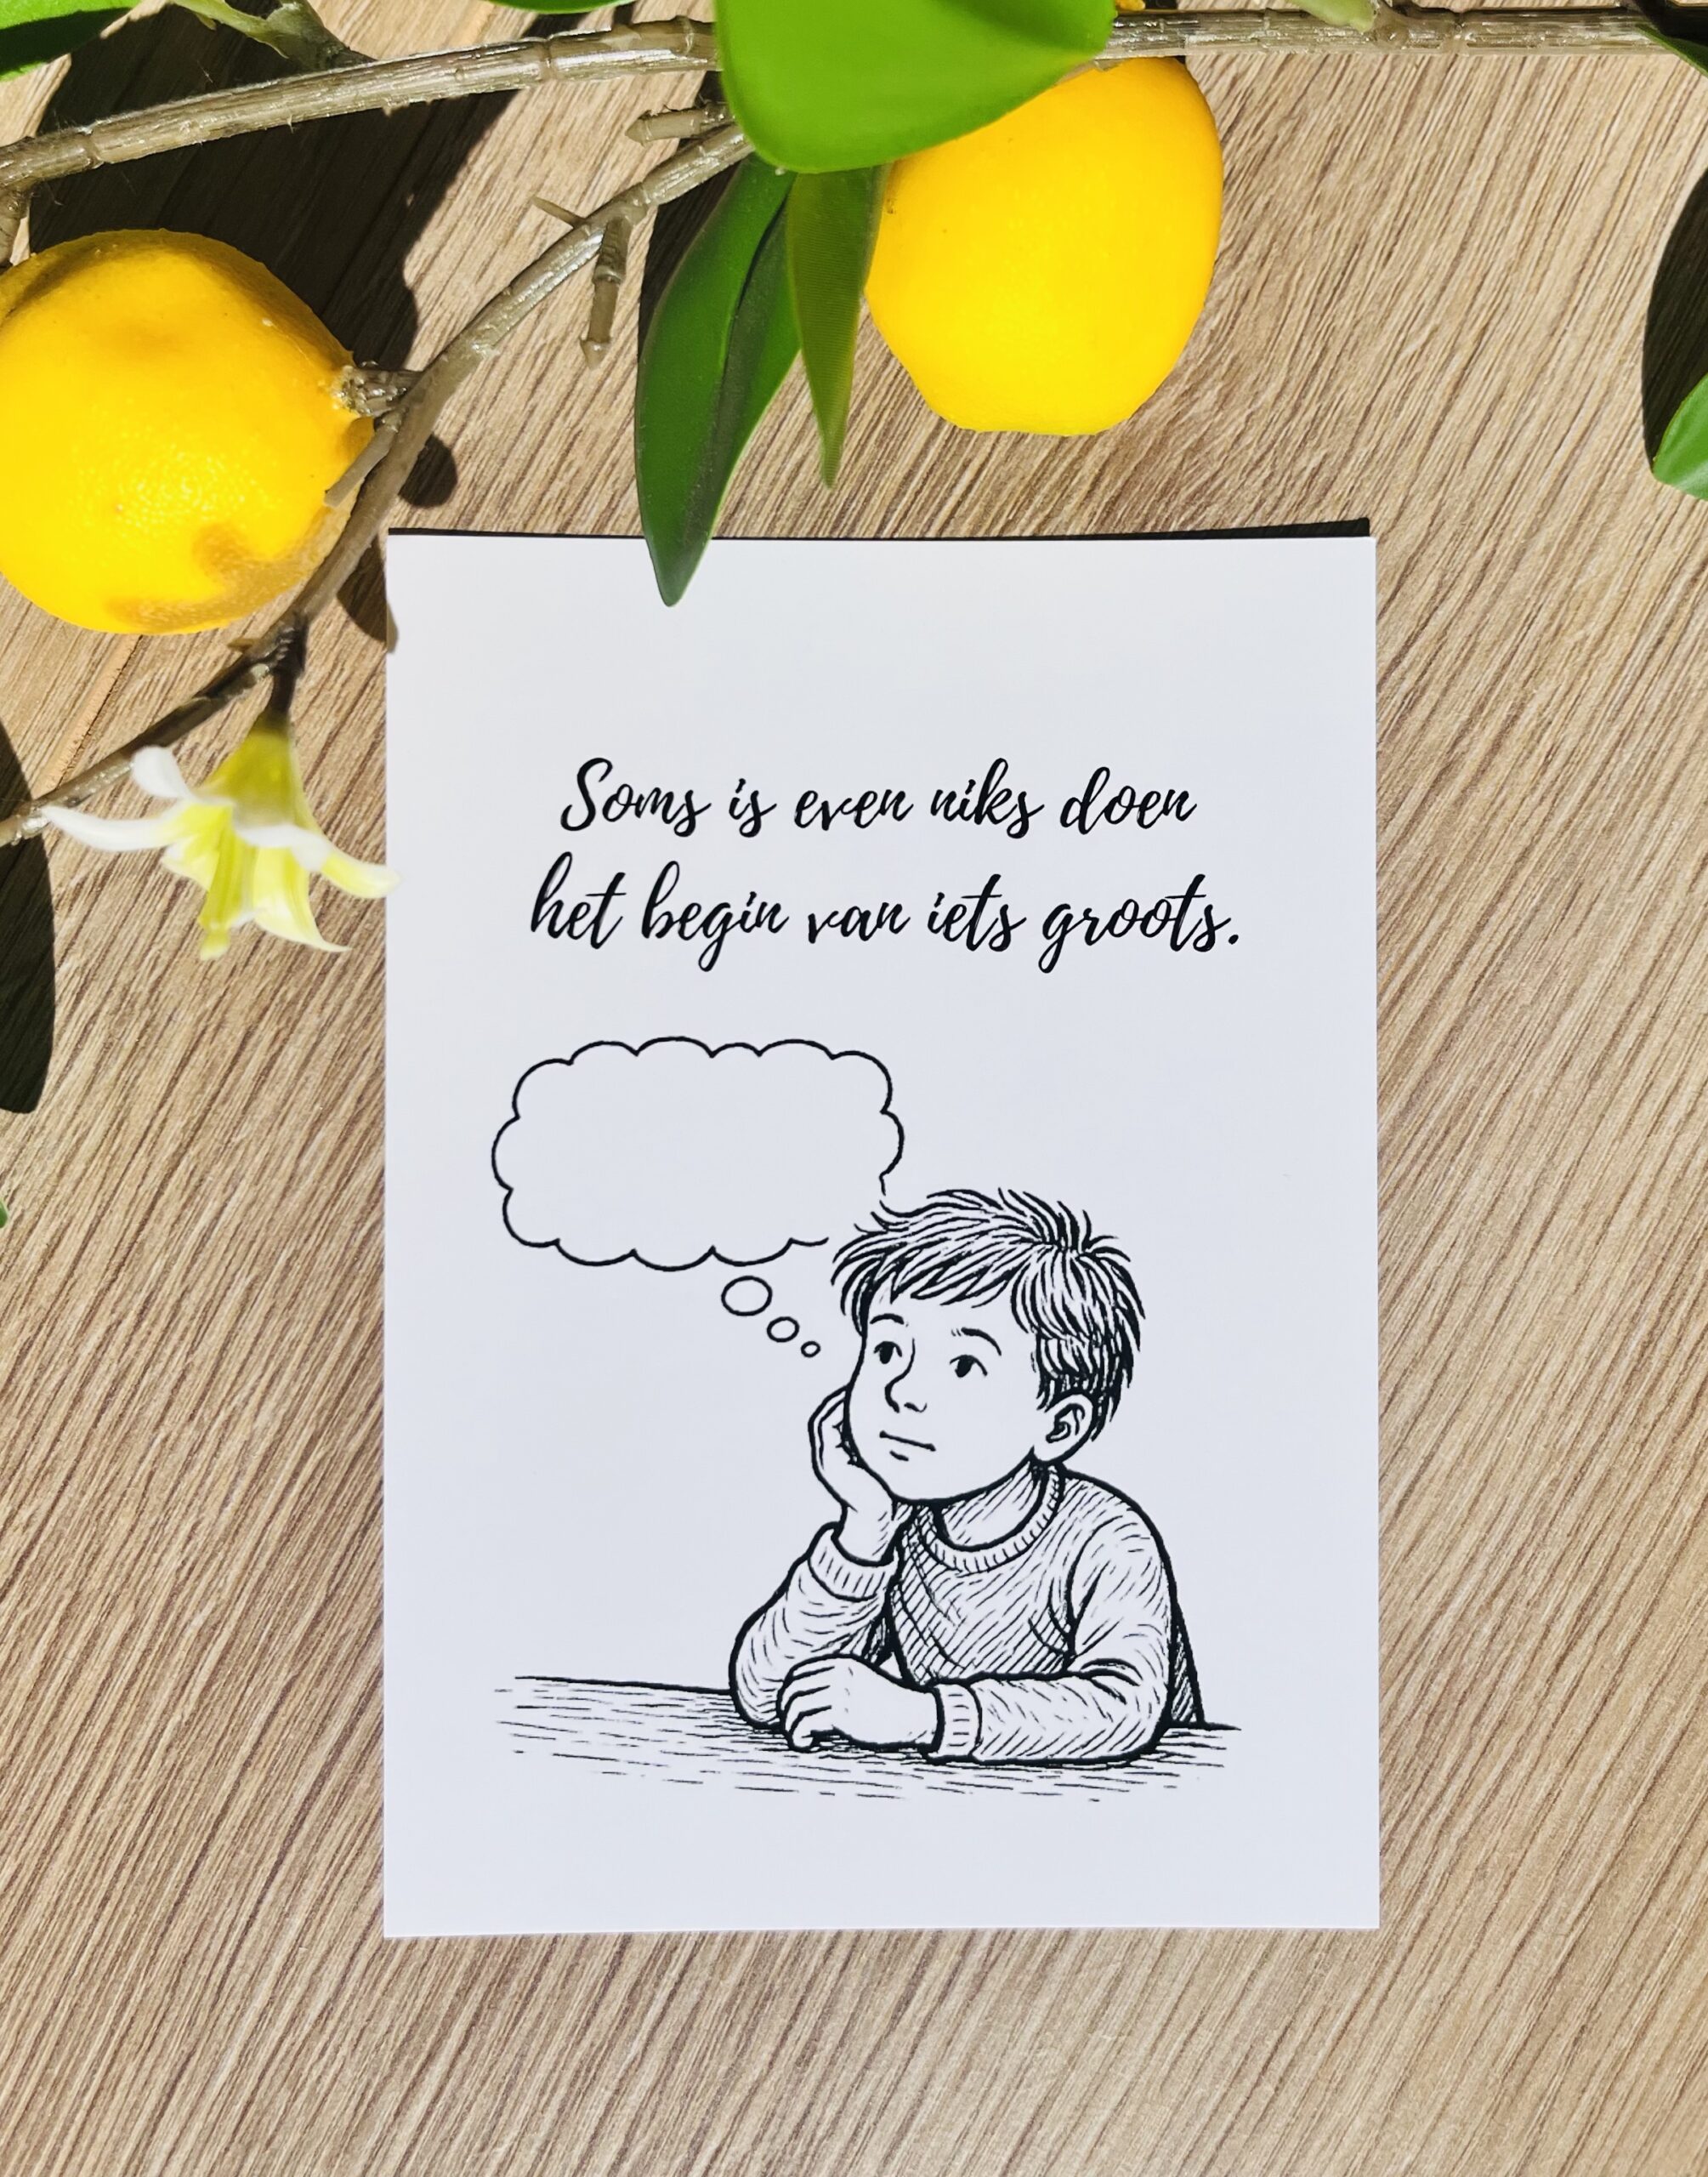 Soms is even niks doen
het begin van iets groots.